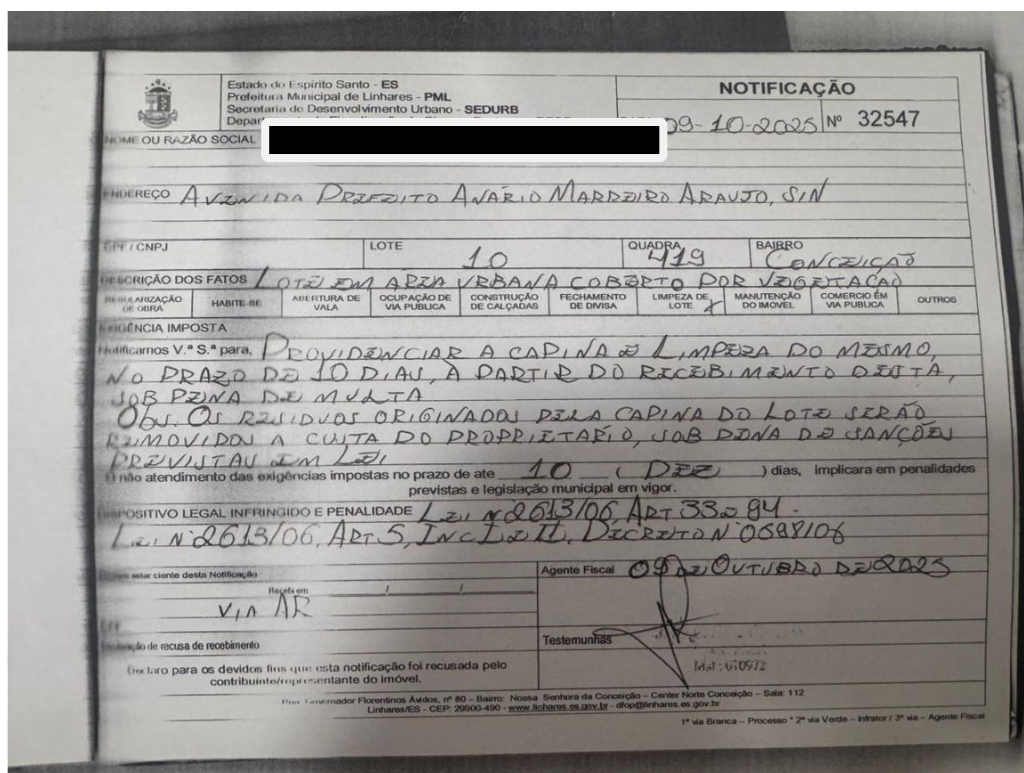 Estado do Espírito Santo - ES
Prefeitura Municipal de Linhares - PML
Secretaria de Desenvolvimento Urbano - SEDURB
NOTIFICAÇÃO
09-10-2025 Nº 32547
NOME OU RAZÃO SOCIAL
ENDEREÇO AVENIDA PREFEITO ANÁRIO MARREIRO ARAUJO, S/N
CPF / CNPJ LOTE 10 QUADRA 419 BAIRRO CONCEIÇÃO
DESCRIÇÃO DOS FATOS LOTE EM AREA URBANA COBERTO POR VEGETAÇÃO
REGULARIZAÇÃO DE OBRA HABITE-SE ABERTURA DE VALA OCUPAÇÃO DE VIA PUBLICA CONSTRUÇÃO DE CALÇADAS FECHAMENTO DE DIVISA LIMPEZA DE LOTE X MANUTENÇÃO DO IMOVEL COMERCIO EM VIA PUBLICA OUTROS
EXIGÊNCIA IMPOSTA
Notificamos V.ª S.ª para, PROVIDENCIAR A CAPINA E LIMPEZA DO MESMO,
NO PRAZO DE 10 DIAS, A PARTIR DO RECEBIMENTO DESTA,
SOB PENA DE MULTA
OBS. OS RESIDUOS ORIGINADOS PELA CAPINA DO LOTE SERÃO
REMOVIDOS A CUSTA DO PROPRIETARIO, SOB PENA DE SANÇÕES
PREVISTAS EM LEI
O não atendimento das exigências impostas no prazo de ate 10 ( DEZ ) dias, implicara em penalidades
previstas e legislação municipal em vigor.
DISPOSITIVO LEGAL INFRINGIDO E PENALIDADE LEI Nº 2613/06, ART 33 e 94.
LEI Nº 2613/06, ART. 5, INC I E II, DECRETO Nº 0698/06
estar ciente desta Notificação
Agente Fiscal 09 DE OUTUBRO DE 2025
Recebi em / /
VIA AR
CPF
de recusa de recebimento
Testemunhas
Mat: 010972
Declaro para os devidos fins que esta notificação foi recusada pelo
contribuinte/representante do imóvel.
Governador Florentinos Ávidos, nº 80 – Bairro: Nossa Senhora da Conceição – Center Norte Conceição – Sala: 112
Linhares/ES - CEP: 29900-490 - www.linhares.es.gov.br - dfop@linhares.es.gov.br
1ª via Branca – Processo * 2ª via Verde – Infrator / 3ª via – Agente Fiscal